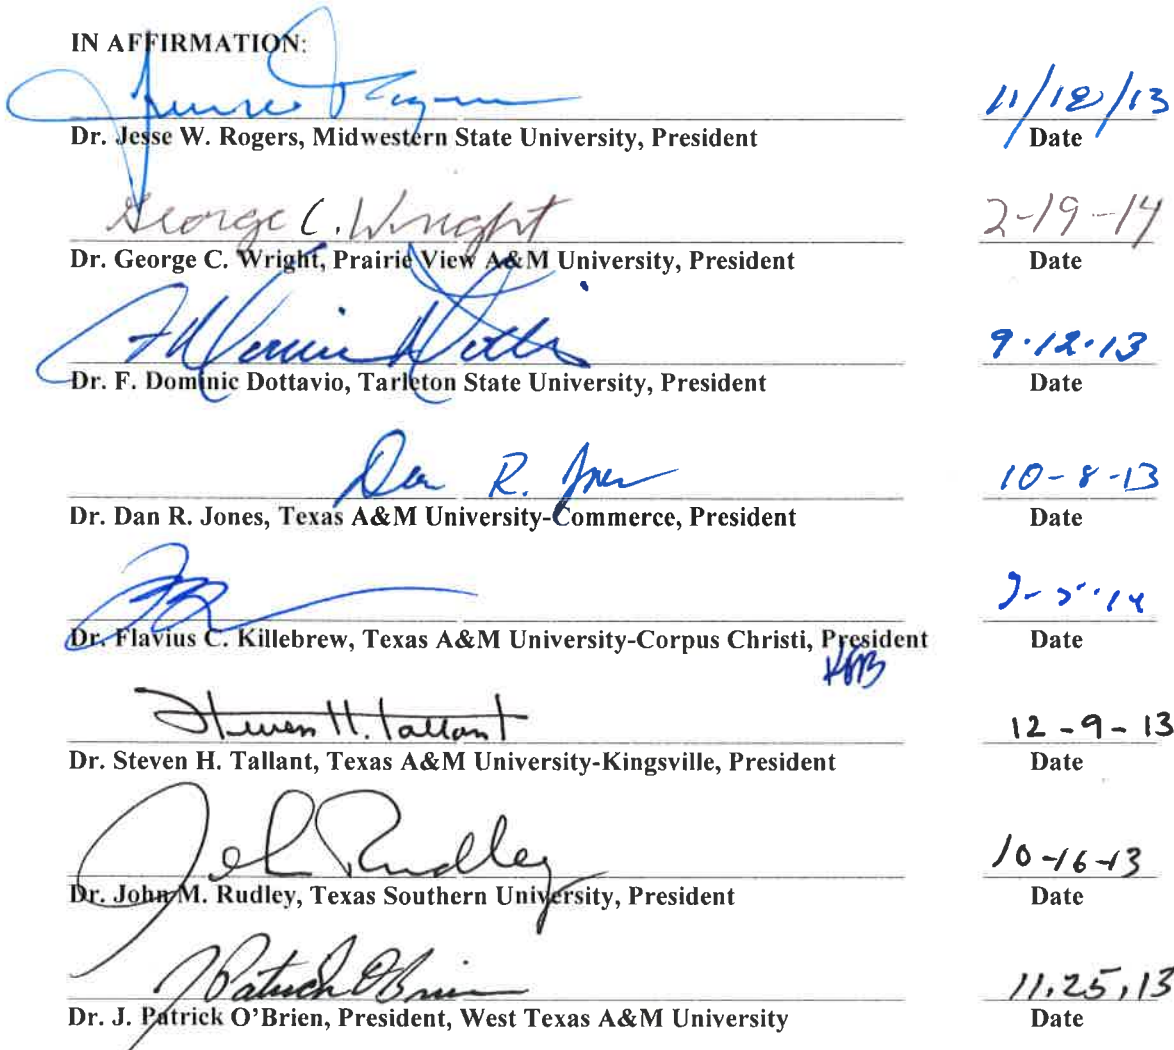 IN AFFIRMATION:
11/12/13
Dr. Jesse W. Rogers, Midwestern State University, President
Date
George C. Wright
2-19-14
Dr. George C. Wright, Prairie View A&M University, President
Date
9.12.13
Dr. F. Dominic Dottavio, Tarleton State University, President
Date
Dan R. Jones
10-8-13
Dr. Dan R. Jones, Texas A&M University-Commerce, President
Date
Dr. Flavius C. Killebrew, Texas A&M University-Corpus Christi, President
Date
Steven H. Tallant
12-9-13
Dr. Steven H. Tallant, Texas A&M University-Kingsville, President
Date
John Rudley
10-16-13
Dr. John M. Rudley, Texas Southern University, President
Date
J Patrick O'Brien
11.25.13
Dr. J. Patrick O'Brien, President, West Texas A&M University
Date